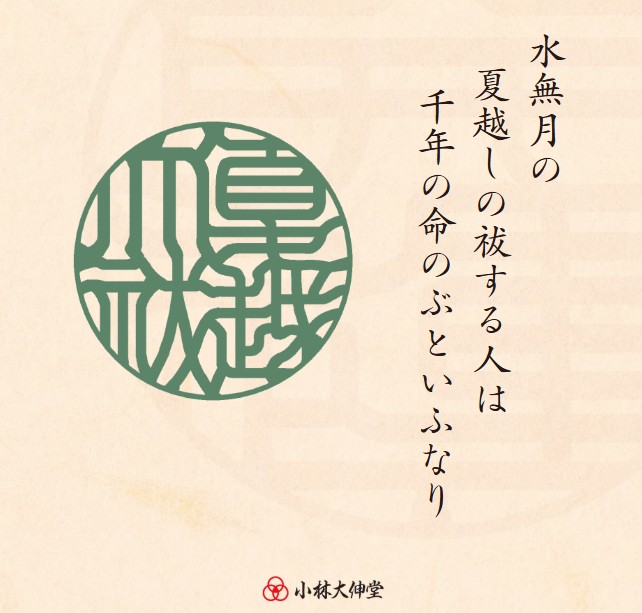 水無月の
夏越しの祓する人は
千年の命のぶといふなり
夏越
大祓
小林大伸堂